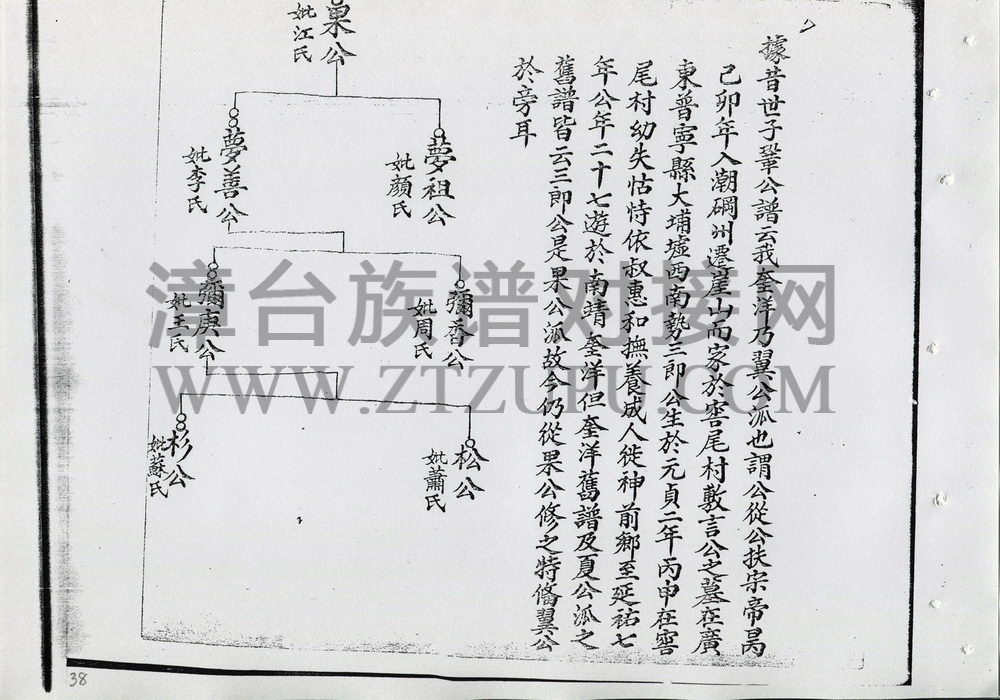 據昔世子鞏公譜云我奎洋乃翼公派也謂公從公扶宗帝昺
己卯年入潮碙州遷崖山而家於窖尾村敷言公之墓在廣
東普寧縣大埔墟西南勢三郎公生於元貞二年丙申在窖
尾村幼失怙恃依叔惠和撫養成人徙神前鄉至延祐七
年公年二十七遊於南靖奎洋但奎洋舊譜及夏公派之
舊譜皆云三郎公是果公派故今仍從果公修之特俻翼公
於旁耳
果公
妣江氏
夢祖公
妣顏氏
夢善公
妣李氏
彌香公
妣周氏
彌庚公
妣王氏
松公
妣蕭氏
杉公
妣蘇氏
漳台族谱对接网
WWW.ZTZUPU.COM
38